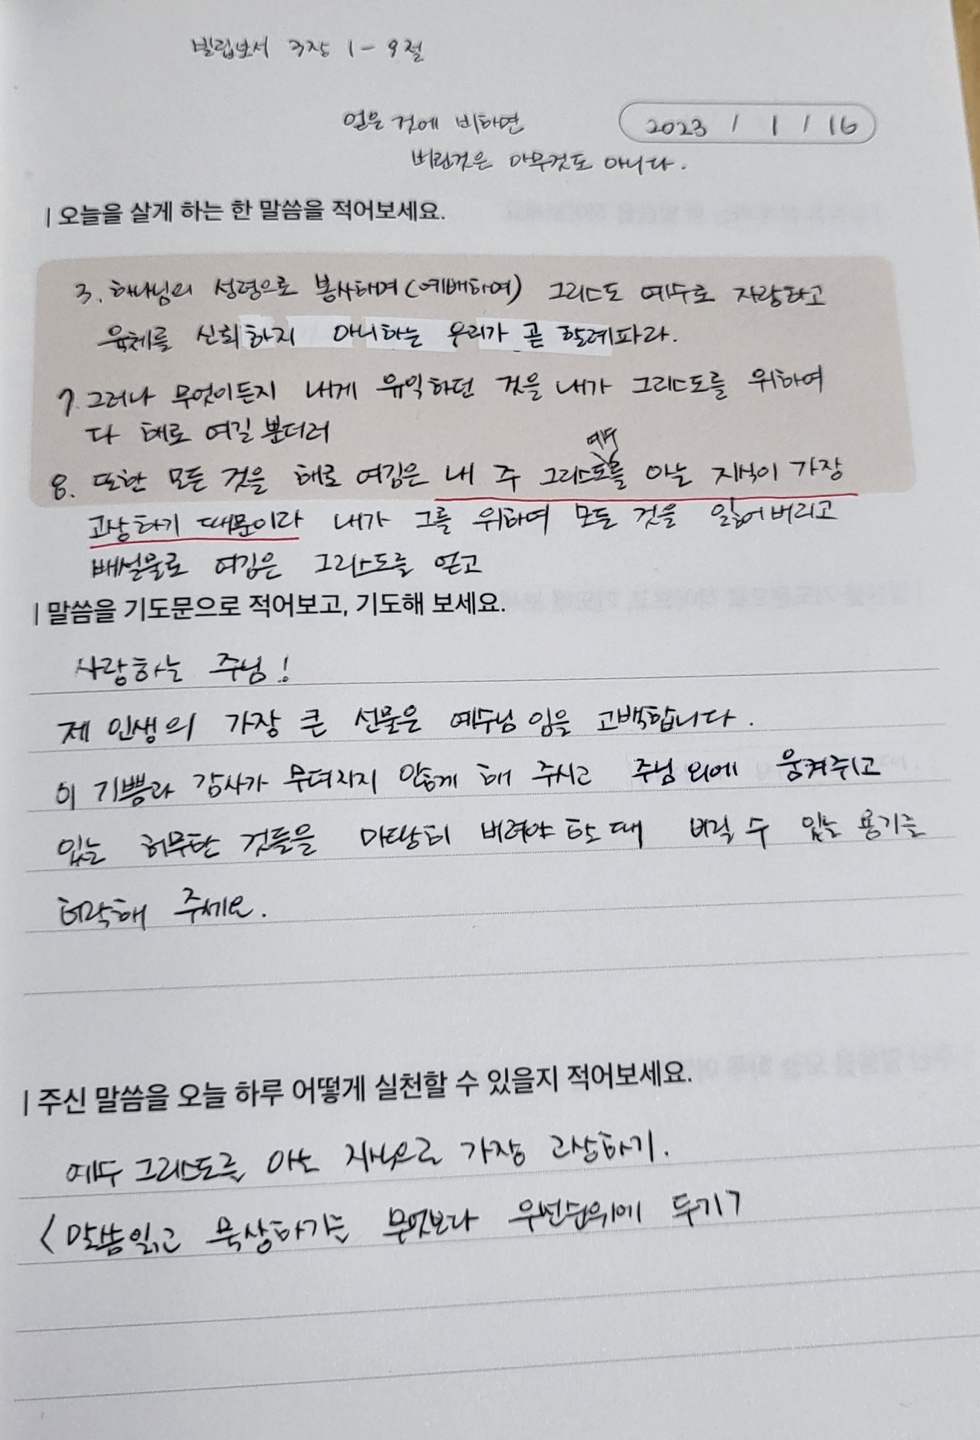 빌립보서 3장 1-9절
얻은 것에 비하면
2023 / 1 / 16
버린것은 아무것도 아니다.
| 오늘을 살게 하는 한 말씀을 적어보세요.
3. 하나님의 성령으로 봉사하며(예배하며) 그리스도 예수로 자랑하고
육체를 신뢰하지 아니하는 우리가 곧 할례파라.
7. 그러나 무엇이든지 내게 유익하던 것을 내가 그리스도를 위하여
다 해로 여길 뿐더러
예수
8. 또한 모든 것을 해로 여김은 내 주 그리스도를 아는 지식이 가장
고상하기 때문이라 내가 그를 위하여 모든 것을 잃어버리고
배설물로 여김은 그리스도를 얻고
| 말씀을 기도문으로 적어보고, 기도해 보세요.
사랑하는 주님!
제 인생의 가장 큰 선물은 예수님 임을 고백합니다.
이 기쁨과 감사가 무뎌지지 않게 해 주시고 주님 외에 움켜쥐고
있는 허무한 것들을 마땅히 버려야 할 때 버릴 수 있는 용기를
허락해 주세요.
| 주신 말씀을 오늘 하루 어떻게 실천할 수 있을지 적어보세요.
예수 그리스도를 아는 지식으로 가장 고상하기.
< 말씀읽고 묵상하기를 무엇보다 우선순위에 두기 >